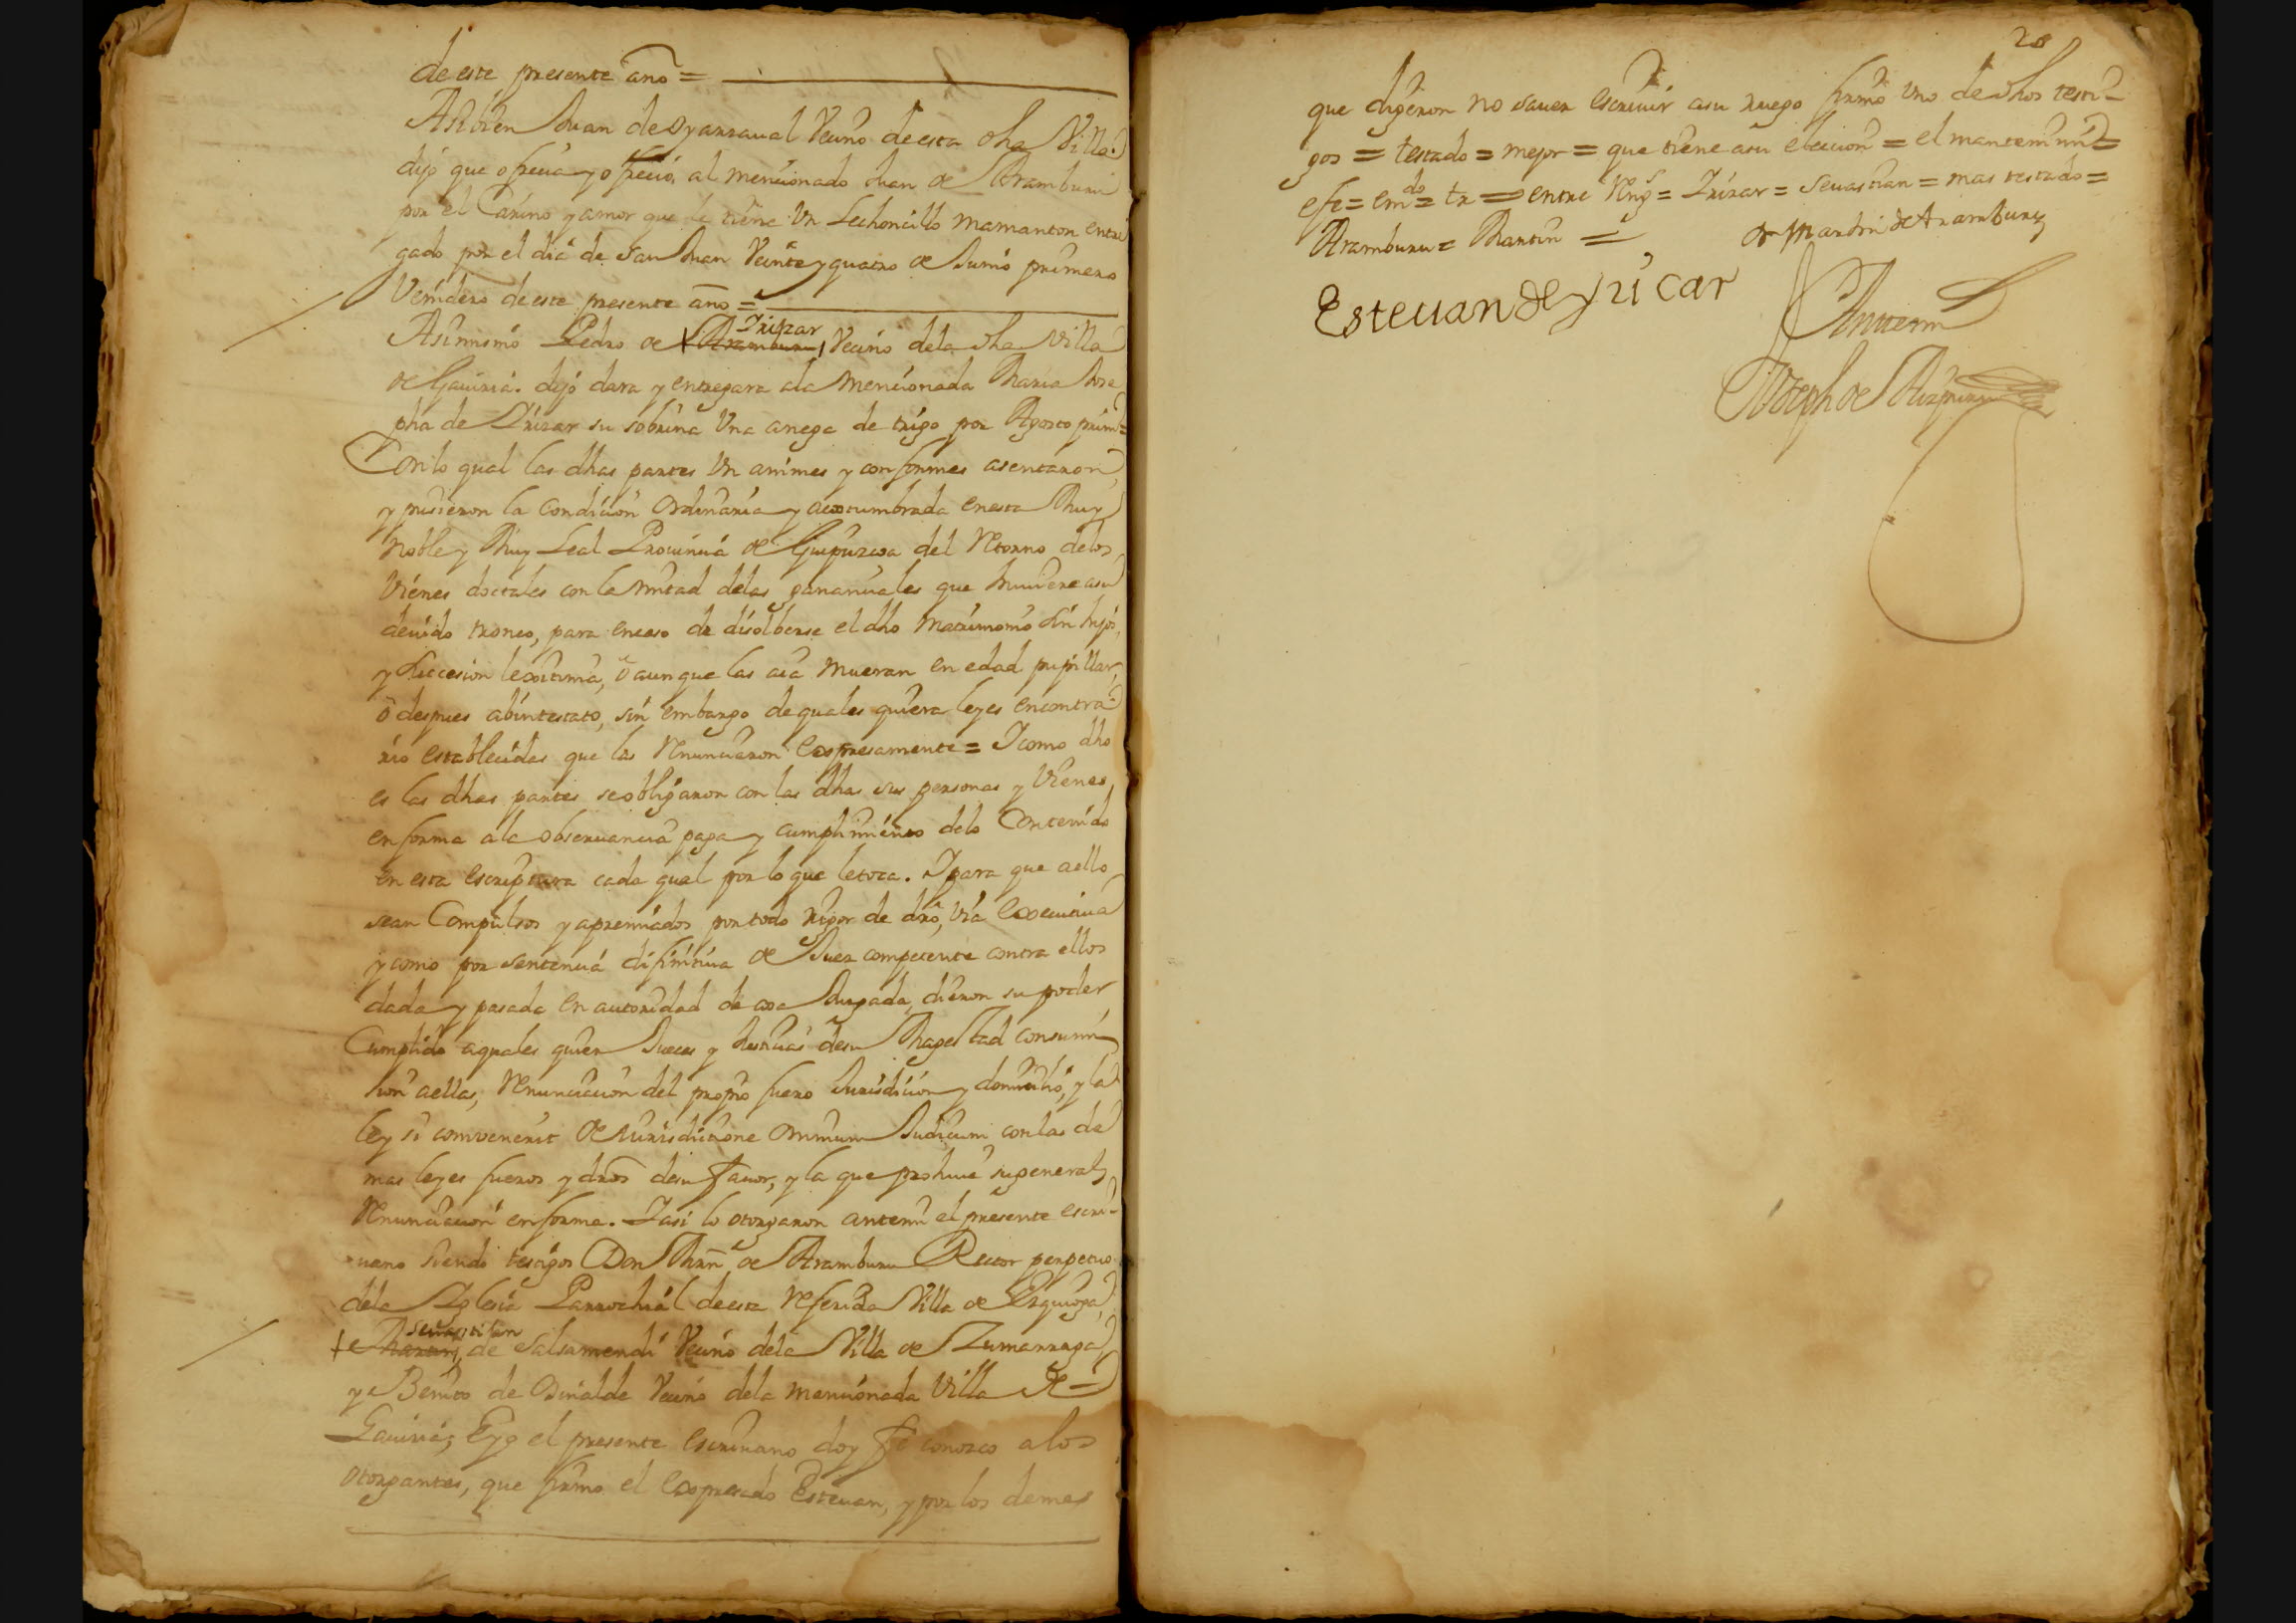 de este presente año =
Asibien Juan de oyarzaual Vecino de esta dha Villa
dijo que ofrecia y ofrecio, al mencionado Juan de Aramburu
por el Cariño y amor que le tiene Un Lechoncillo mamanton entre
gado por el dia de San Juan Veinte y quatro de Junio primero
Venidero de este presente año =
Asimismo Pedro de Aramburu Irizar Vecino dela dha Villa
de Gauiria. dijo dara y entregara ala mencionada Maria Jose
pha de Irizar su sobrina Una anega de trigo por Agosto primº
Con lo qual las dhas partes Un animes y conformes asentaron
y pusieron la Condicion Ordinaria y acostumbrada enesta Muy
Noble y Muy Leal Prouincia de Guipuzcoa del Retorno delos
Vienes dotales con la mitad delas gananciales que huuiere asu
deuido tronco, para encaso de disolberse el dho Matrimonio sin hijos,
y subcesion lexitima, o aunque las aia mueran en edad pupillar,
o despues abintestato, sin embargo de quales quiera leyes encontra
rio establecidas que las Renunciaron Expresamente = I como dho
es las dhas partes se obligaron con las dhas sus personas y Vienes
en forma ala obseruancia paga y cumplimiento delo Contenido
en esta escriptura cada qual por lo que le toca. I para que aello
sean Compulsos y apremiados por todo rigor de dro, Via Executiua
y como por sentencia difinitiua de Juez competente contra ellos
dada y pasada en autoridad de cosa Juzgada, dieron su poder
Cumplido a quales quier Jueces y Justicias desu Magestad con sumi
sion aellas, Renunciacion del propio fuero Jurisdicion y domicilio, y la
ley si convenerit de Jurisdictione Omnium Judicum con las de
mas leyes fueros y dros desu fauor, y la que prohiue su general
Renunciacion en forma. I asi lo otorgaron antemi el presente escri
uano siendo testigos Don Mrn de Aramburu Rector perpetuo
dela Iglesia Parrochial de esta referida Villa de Ezquioga,
Martin seuastian de Salsamendi Vecino dela Villa de Zumarraga,
y Benito de Oria­lde Vecino dela mencionada Villa de
Gauiria, E yo el presente escriuano doy fe conozco alos
otorgantes, que firmo el Expresado Esteuan, y por los demas
28
que digeron no sauer escriuir asu ruego firmo Uno de dhos testi
gos = testado = mejor = que tiene asu eleccion = el mantenimº =
efe = emdo = tr = entre Rengs = Irizar = Seuastian = mas testado =
Aramburu = Martin =
Dn Martin de Aramburu
Esteuan de yricar
Antemi
Joseph de Aizpuru